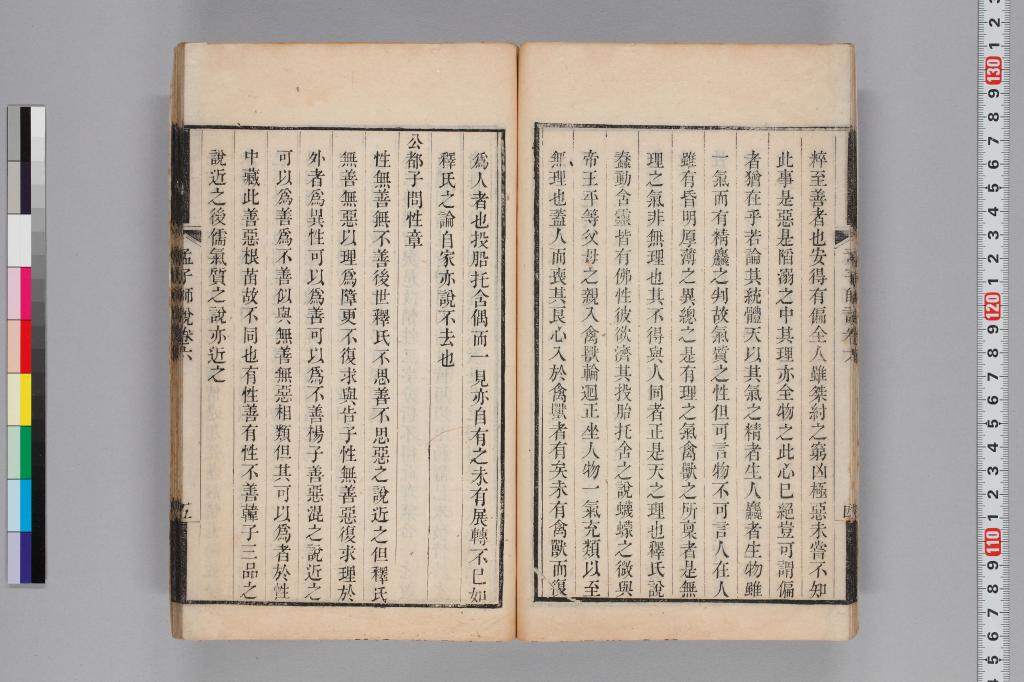 粹至善者也安得有偏全人雖桀紂之窮凶極惡未嘗不知
此事是惡是陷溺之中其理亦全物之此心已絕豈可謂偏
者猶在乎若論其統體天以其氣之精者生人麤者生物雖
一氣而有精麤之判故氣質之性但可言物不可言人在人
雖有昏明厚薄之異總之是有理之氣禽獸之所稟者是無
理之氣非無理也其不得與人同者正是天之理也釋氏說
蠢動含靈皆有佛性彼欲濟其投胎托舍之說蟻蠓之微與
帝王平等父母之親入禽獸輪迴正坐人物一氣充類以至
無理也蓋人而喪其良心入於禽獸者有矣未有禽獸而復
孟子師說卷六
四
爲人者也投胎托舍偶而一見亦自有之未有展轉不已如
釋氏之論自家亦說不去也
公都子問性章
性無善無不善後世釋氏不思善不思惡之說近之但釋氏
無善無惡以理爲障更不復求與告子性無善惡復求理於
外者爲異性可以爲善可以爲不善楊子善惡混之說近之
可以爲善爲不善似與無善無惡相類但其可以爲者於性
中藏此善惡根苗故不同也有性善有性不善韓子三品之
說近之後儒氣質之說亦近之
孟子師說卷六
五
0 1 2 3 4 5 6 7 8 9 110 1 2 3 4 5 6 7 8 9 120 1 2 3 4 5 6 7 8 9 130 1 2